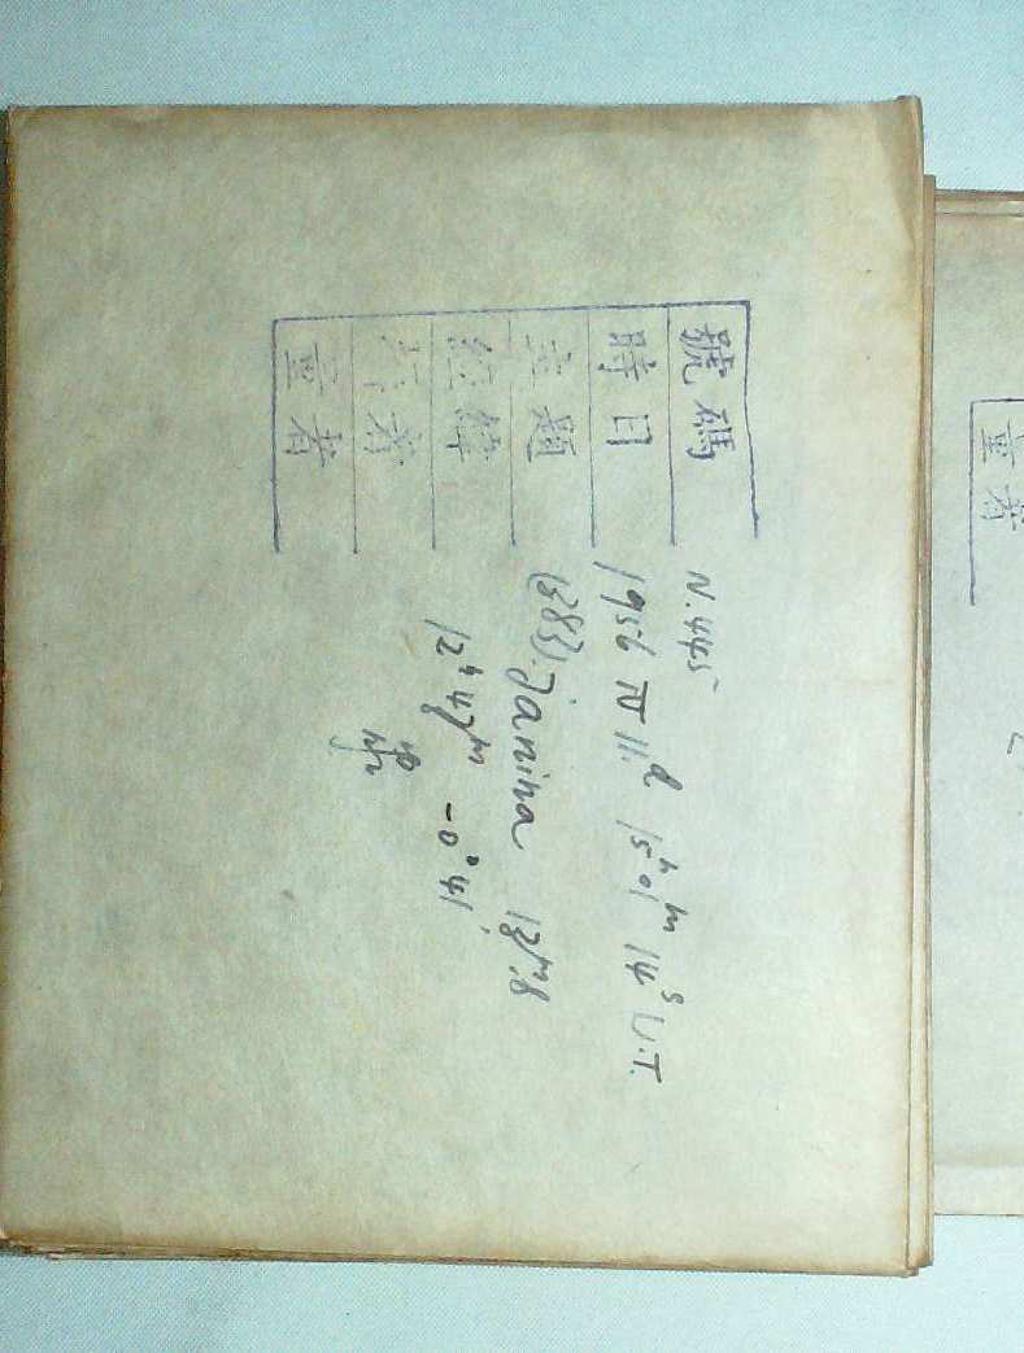 號碼 N.445
時日 1956 IV 11.d 15h 01m 14s U.T.
主題 (383) Janina 13m.8
經緯 12h 47m -0° 41'
量者
量者